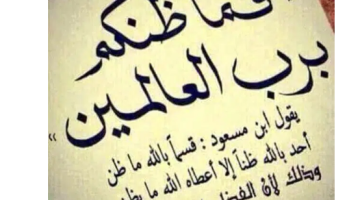 فما ظنكم
برب العالمين "
يقول ابن مسعود : قسماً بالله ما ظن
أحد بالله ظناً إلا أعطاه الله ما يظن
وذلك لأن الفضل